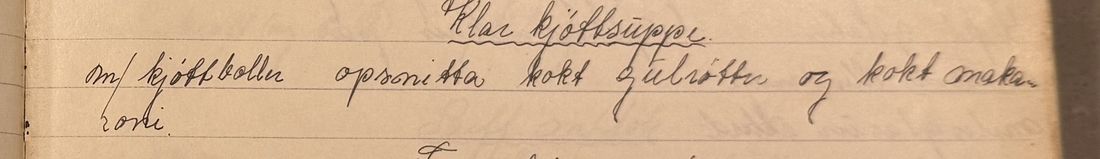 Klar kjöttsuppe.
m/ kjöttboller opsnitta kokt gulrötter og kokt maka-
roni.